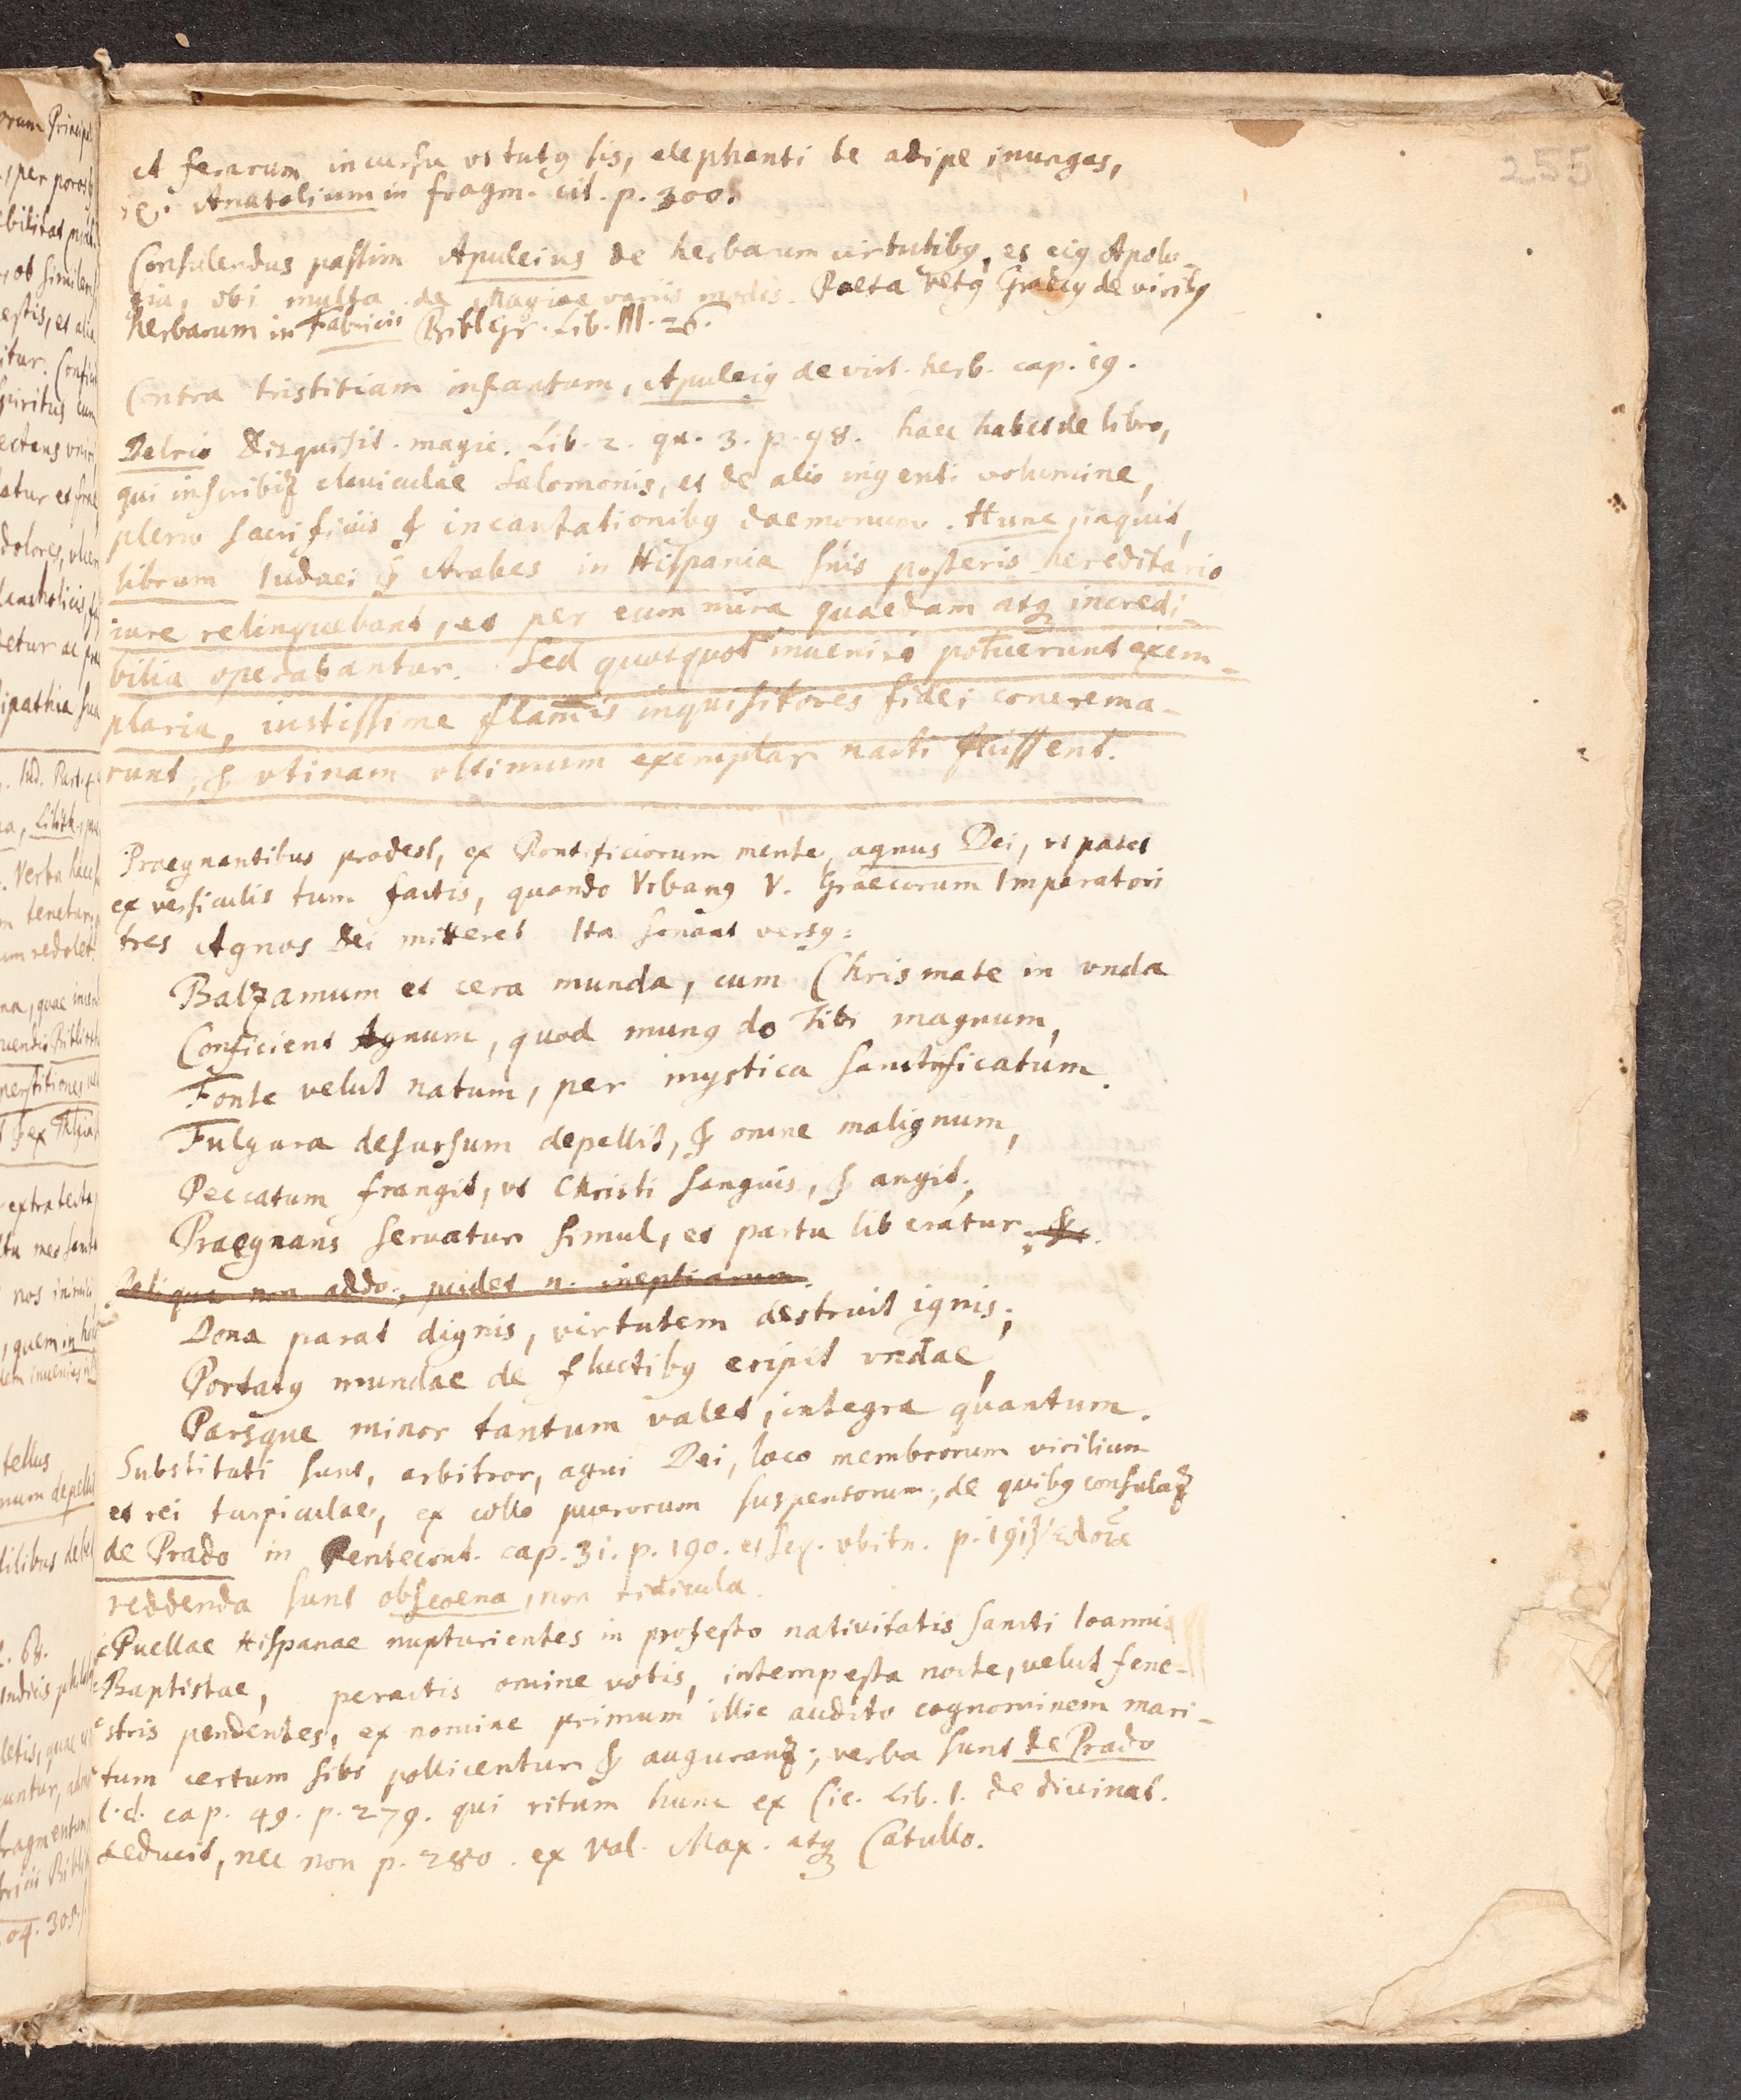 255
et ferarum incursu vt tutq sis, elephanti te adipe inungas,
Anatolium in fragm. cit. p. 300.
Consulendus passim Apuleius de herbarum virtutibq, et eiq Apolo-
gia, vbi multa de Magiae variis modis. Poeta vetq Graecq de viribq
herbarum in Fabricii Bibl. Gr. Lib. III. 26.
Contra tristitiam infantum, Apuleiq de virt. herb. cap. 19.
Delrio Disquisit. magic. Lib. 2. qu. 3. p. 98. haec habet de libro,
qui inscribiꝫ claviculae Salomonis, et de alio ingenti volumine,
pleno sacrificiis & incantationibq daemonum. Hunc, inquit,
librum Iudaei & Arabes in Hispania suis posteris hereditario
iure relinquebant, et per eum mira quaedam atqꝫ incredi-
bilia operabantur. Sed quotquot inuenire potuerunt exem-
plaria, iustissime flam̄is inquisitores fidei concrema-
runt; & vtinam vltimum exemplar nacti fuissent.
Praegnantibus prodest, ex Pontificiorum mente, agnus Dei, vt patet
ex versiculis tum factis, quando Vrbanq V. Graecorum Imperatori
tres Agnos Dei mitteret Ita sonant versq:
Balzamum et cera munda, cum Chrismate in vnda
Conficient Agnum, quod munq do Tibi magnum,
Fonte velut natum, per mystica sanctificatum.
Fulgura desursum depellit, & omne malignum,
Peccatum frangit, vt Christi sanguis, & angit;
Praegnans seruatur simul, et partu liberatur; &c.
Reliqua non addo; pudet n. ineptiarum.
Dona parat dignis, virtutem destruit ignis;
Portatq mundae de fluctibq eripit vndae,
Parsque minor tantum valet, integra quantum.
Substituti sunt, arbitror, agni Dei, loco membrorum virilium
et rei turpiculae, ex collo puerorum suspensorum; de quibq consulaꝫ
de Prado in Pentecont. cap. 31. p. 190. et seq. vbi tn. p. 191
reddenda sunt obscoena, non ridicula.
Puellae Hispanae nupturientes in profesto nativitatis sancti Ioannis
Baptistae, peractis omine votis, intempesta nocte, velut fene-
stris pendentes, ex nomine primum illic audito cognominem mari-
tum certum sibi pollicentur & auguranꝫ; verba sunt de Prado
l. d. cap. 49. p. 279. qui ritum hunc ex Cic. Lib. I. de divinat.
deducit, nec non p. 280. ex Val. Max. atqꝫ Catullo.